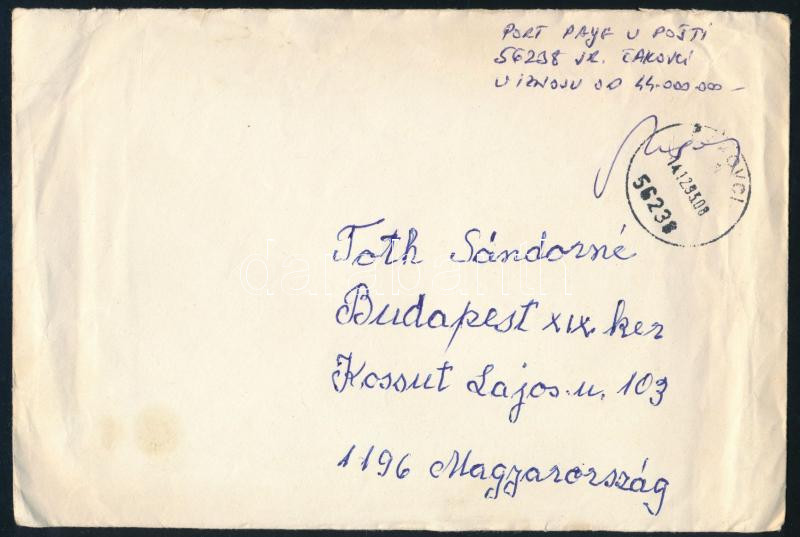 PORT PAYE U POŠTI
56238 VR. ČAKOVCI
U IZNOSU OD 44.000.000 —
14.12.93.08
56238
Toth Sándorné
Budapest XIX. ker
Kossut Lajos u. 103
1196 Magyarország